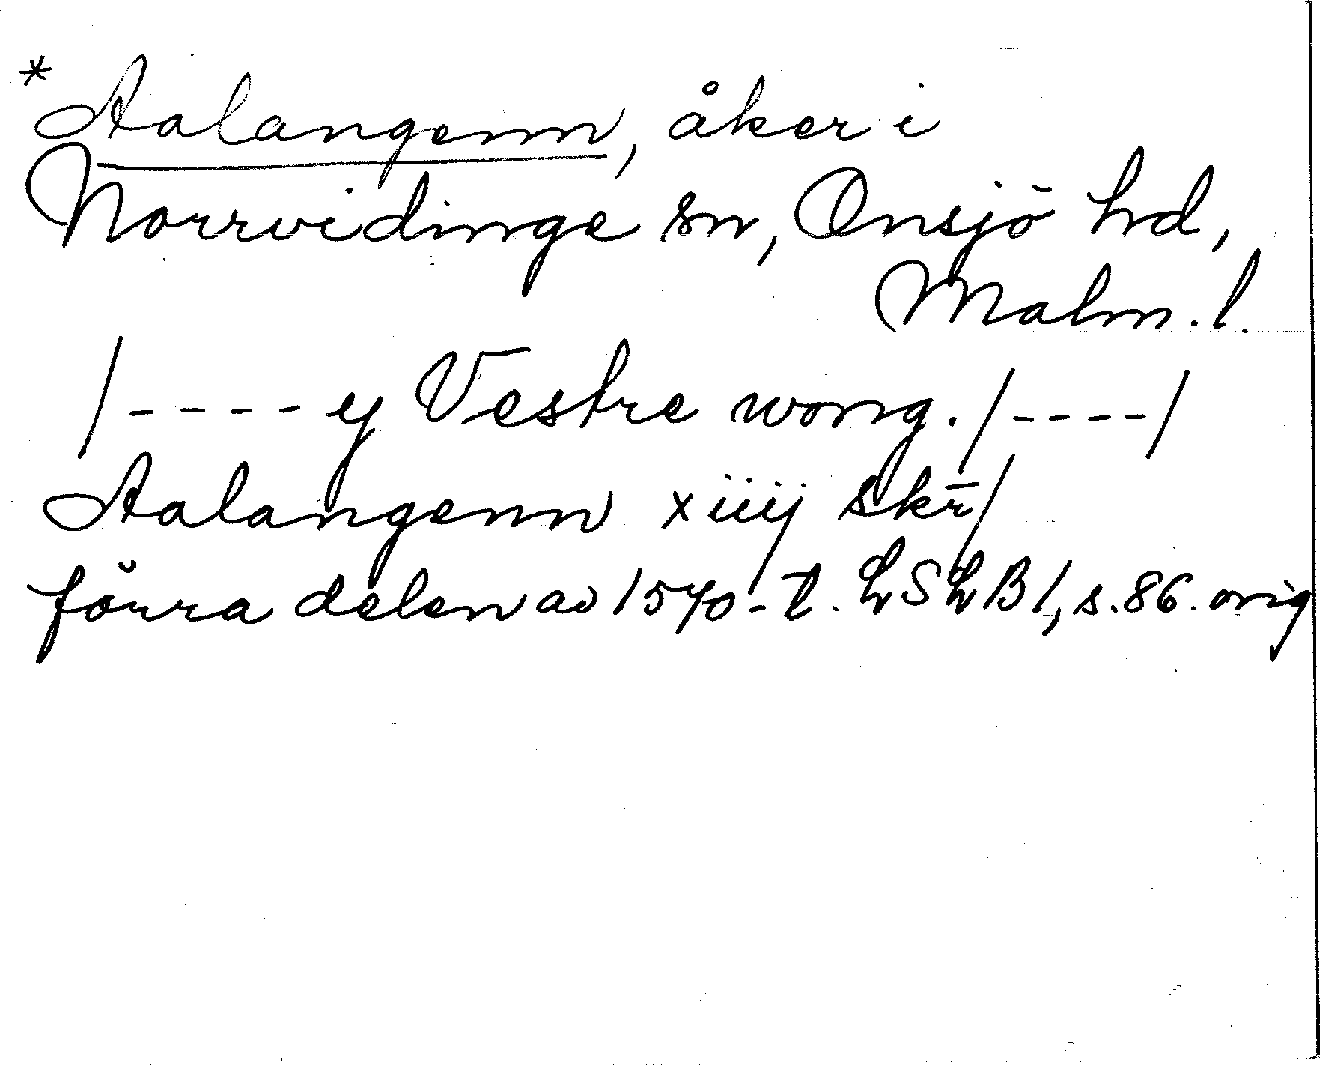 *Aalangenn, åker i
Norrvidinge sn, Onsjö hd,
Malm. l.
/---- ij Vestre wong. /----/
Aalangenn xiiij skr̄/
förra delen av 1570-t. LSLB 1, s. 86. orig